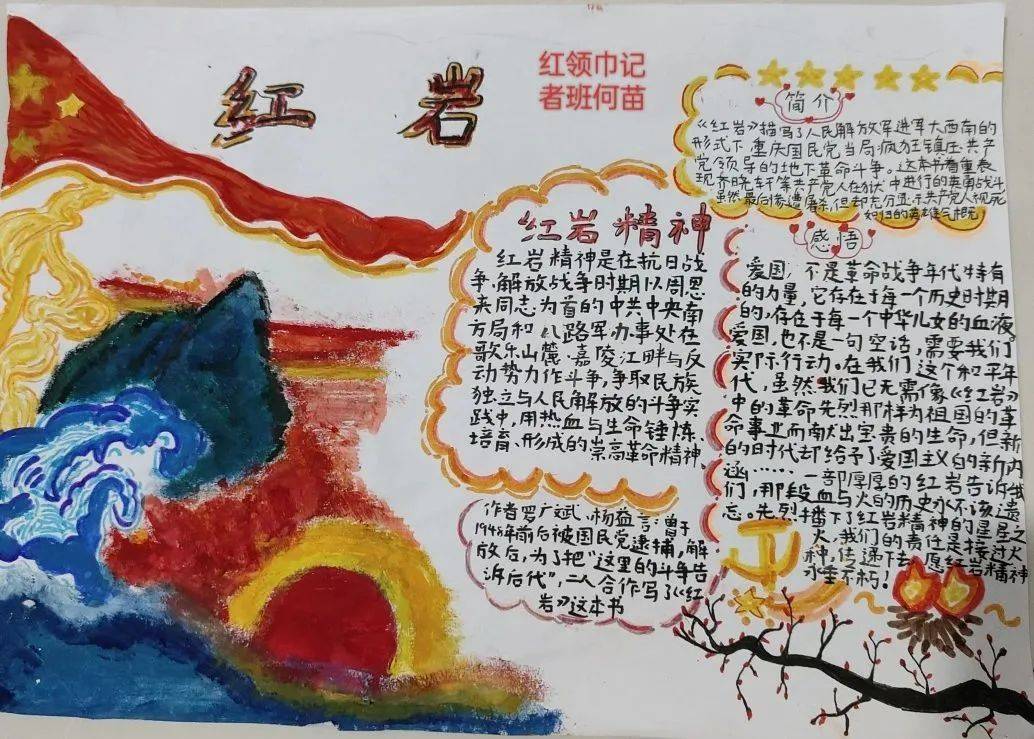 红岩
红领巾记
者班何苗
简介
《红岩》描写了人民解放军进军大西南的
形式下,重庆国民党当局疯狂镇压共产
党领导的地下革命斗争。这本书着重表
现齐晓轩等共产党人在狱中进行的英勇战斗
虽然最后惨遭屠杀,但却充分显示共产党人视死
如归的英雄气慨
红岩精神
红岩精神是在抗日战
争、解放战争时期以周恩
来同志为首的中共中央南
方局和八路军办事处在
歌乐山麓、嘉陵江畔与反
动势力作斗争,争取民族
独立与人民解放的斗争实
践中,用热血与生命锤炼、
培育、形成的崇高革命精神,
作者罗广斌、杨益言,曾于
1948年前后被国民党逮捕,解
放后,为了把“这里的斗争告
诉后代”,二人合作写了《红
岩》这本书
感悟
爱国,不是革命战争年代特有
的力量,它存在于每一个历史时期
的,存在于每一个中华儿女的血液。
爱国,也不是一句空话,需要我们
实际行动。在我们这个和平年
代,虽然我们已无需像《红岩》
中的革命先烈那样为祖国的革
命事业而献出宝贵的生命,但新
的时代却给予了爱国主义的新内
涵……一部厚厚的红岩告诉我
们,那段血与火的历史永不该遗
忘。先烈播下了红岩精神的星星之
火,我们的责任是接过火
种,传递下去,愿红岩精神
永垂不朽!